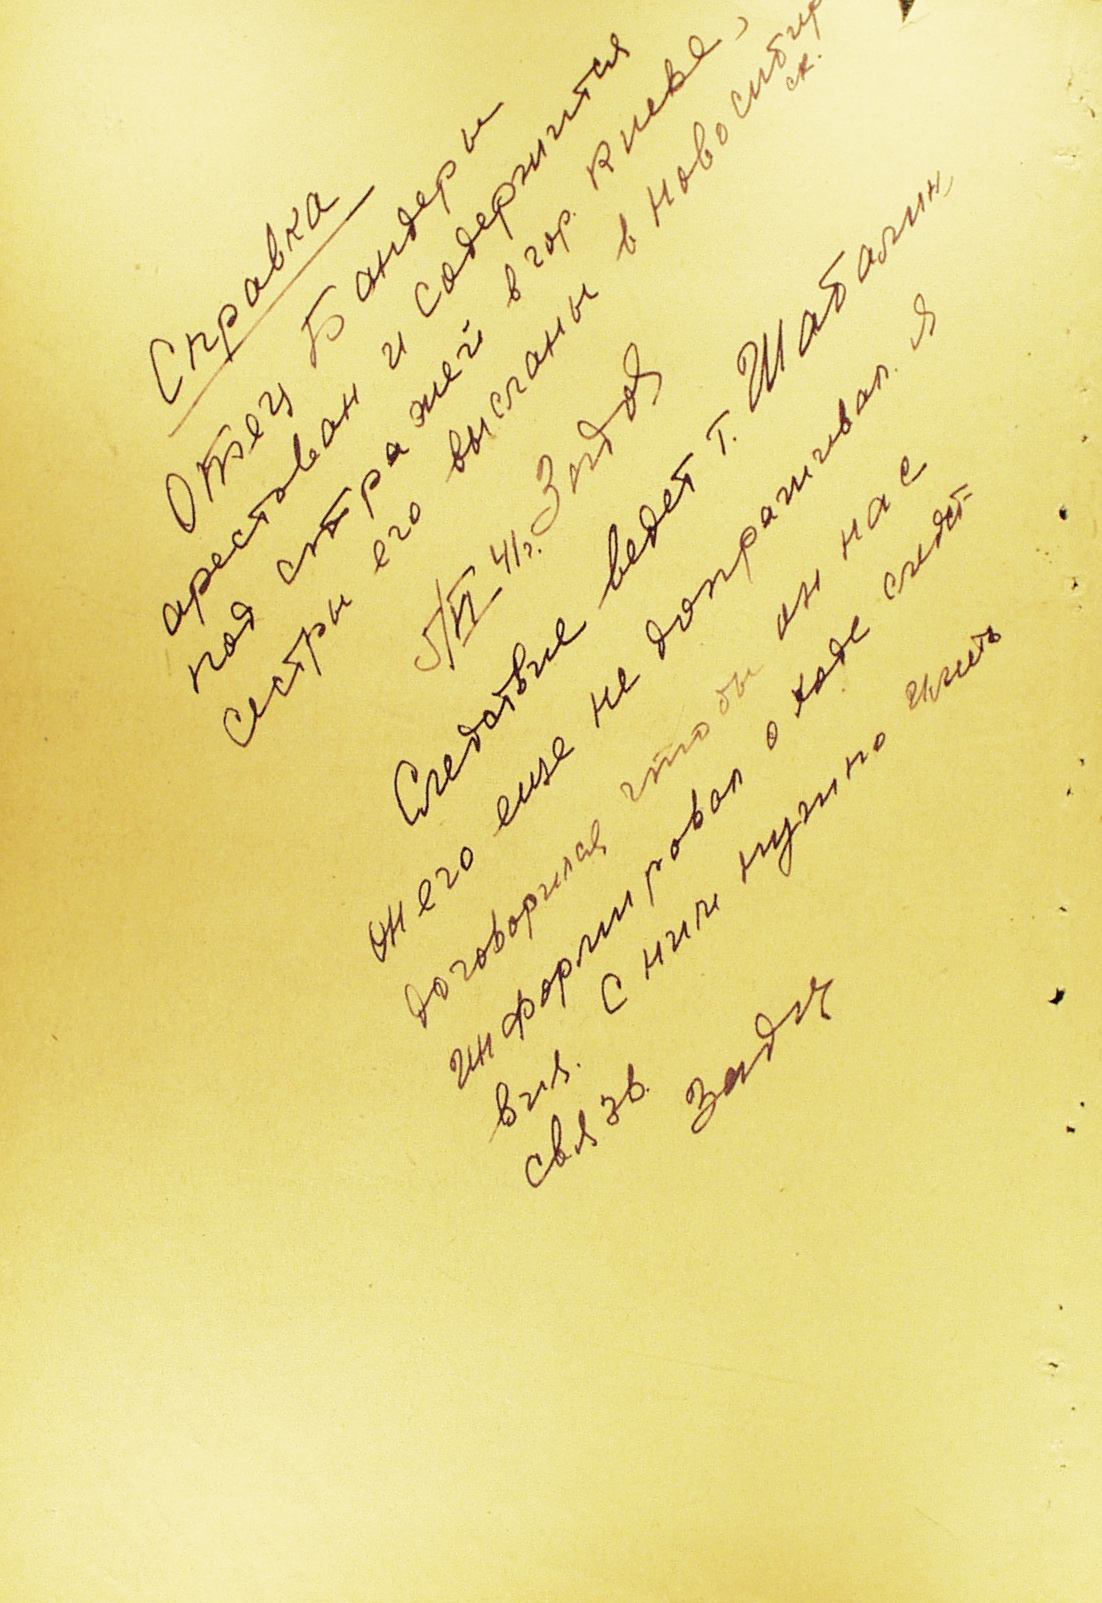 Справка
Отец Бандеры
арестован и содержится
под стражей в гор. Киеве,
сестры его высланы в Новосибирск.
5/VI 41г.
Следствие ведет т. Шабалин,
он его еще не допрашивал. Я
договорился чтобы он нас
информировал о ходе следст-
вия. С ним нужно иметь
связь.